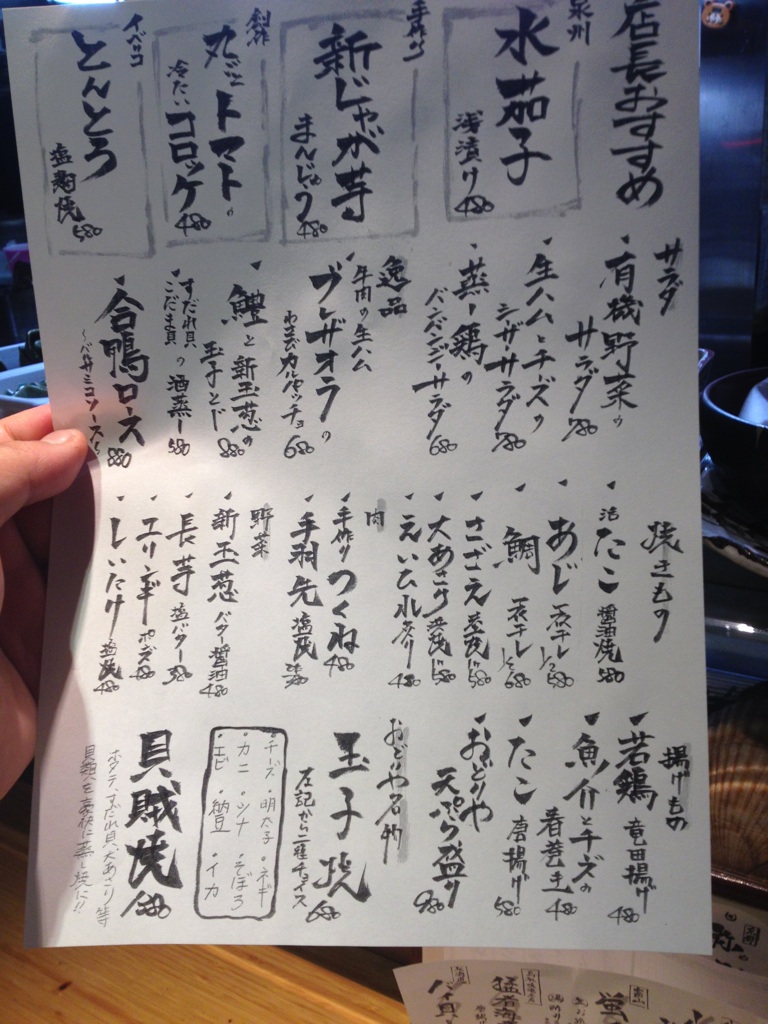 店長おすすめ
泉州
水茄子
浅漬け 480
手作り
新じゃが芋
まんじゅう 480
創作
丸ごとトマトの
冷たいコロッケ 480
イベリコ
とんとろ
塩麹焼 580
サラダ
有機野菜の
サラダ 780
生ハムとチーズの
シーザーサラダ 780
蒸し鶏の
バンバンジーサラダ 680
逸品
牛肉の生ハム
ブレザオラの
わさびカルパッチョ 680
鱧と新玉葱の
玉子とじ 880
すだれ貝
こだま貝
の酒蒸し 580
合鴨ロース
〜バルサミコソース〜 880
焼きもの
活たこ 醤油焼 580
あじ 一夜干し 1/2 580
鯛 一夜干し 1/2 680
さざえ 壺焼 580
大あさり 壺焼 580
えいひれ炙り 480
肉
手作りつくね 480
手羽先 塩焼
野菜
新玉葱 バター醤油 480
長芋 塩バター 380
エリンギ ポン酢 480
しいたけ 塩焼 480
揚げもの
若鶏 竜田揚げ 480
魚介とチーズの
春巻き 480
たこ 唐揚げ 580
おどりや
天ぷら盛り 980
おどりや名物
玉子焼
左記から二種チョイス 680
・チーズ ・明太子 ・ネギ
・カニ ・ツナ ・そぼろ
・エビ ・納豆 ・イカ
貝賊焼
ホタテ、すだれ貝、大あさり等
貝類を豪快に蒸し焼に!!